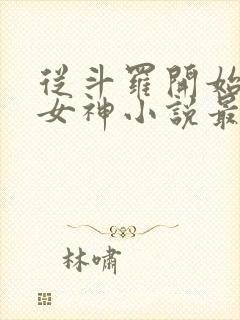 從斗羅開始
女神小說最
林嘯